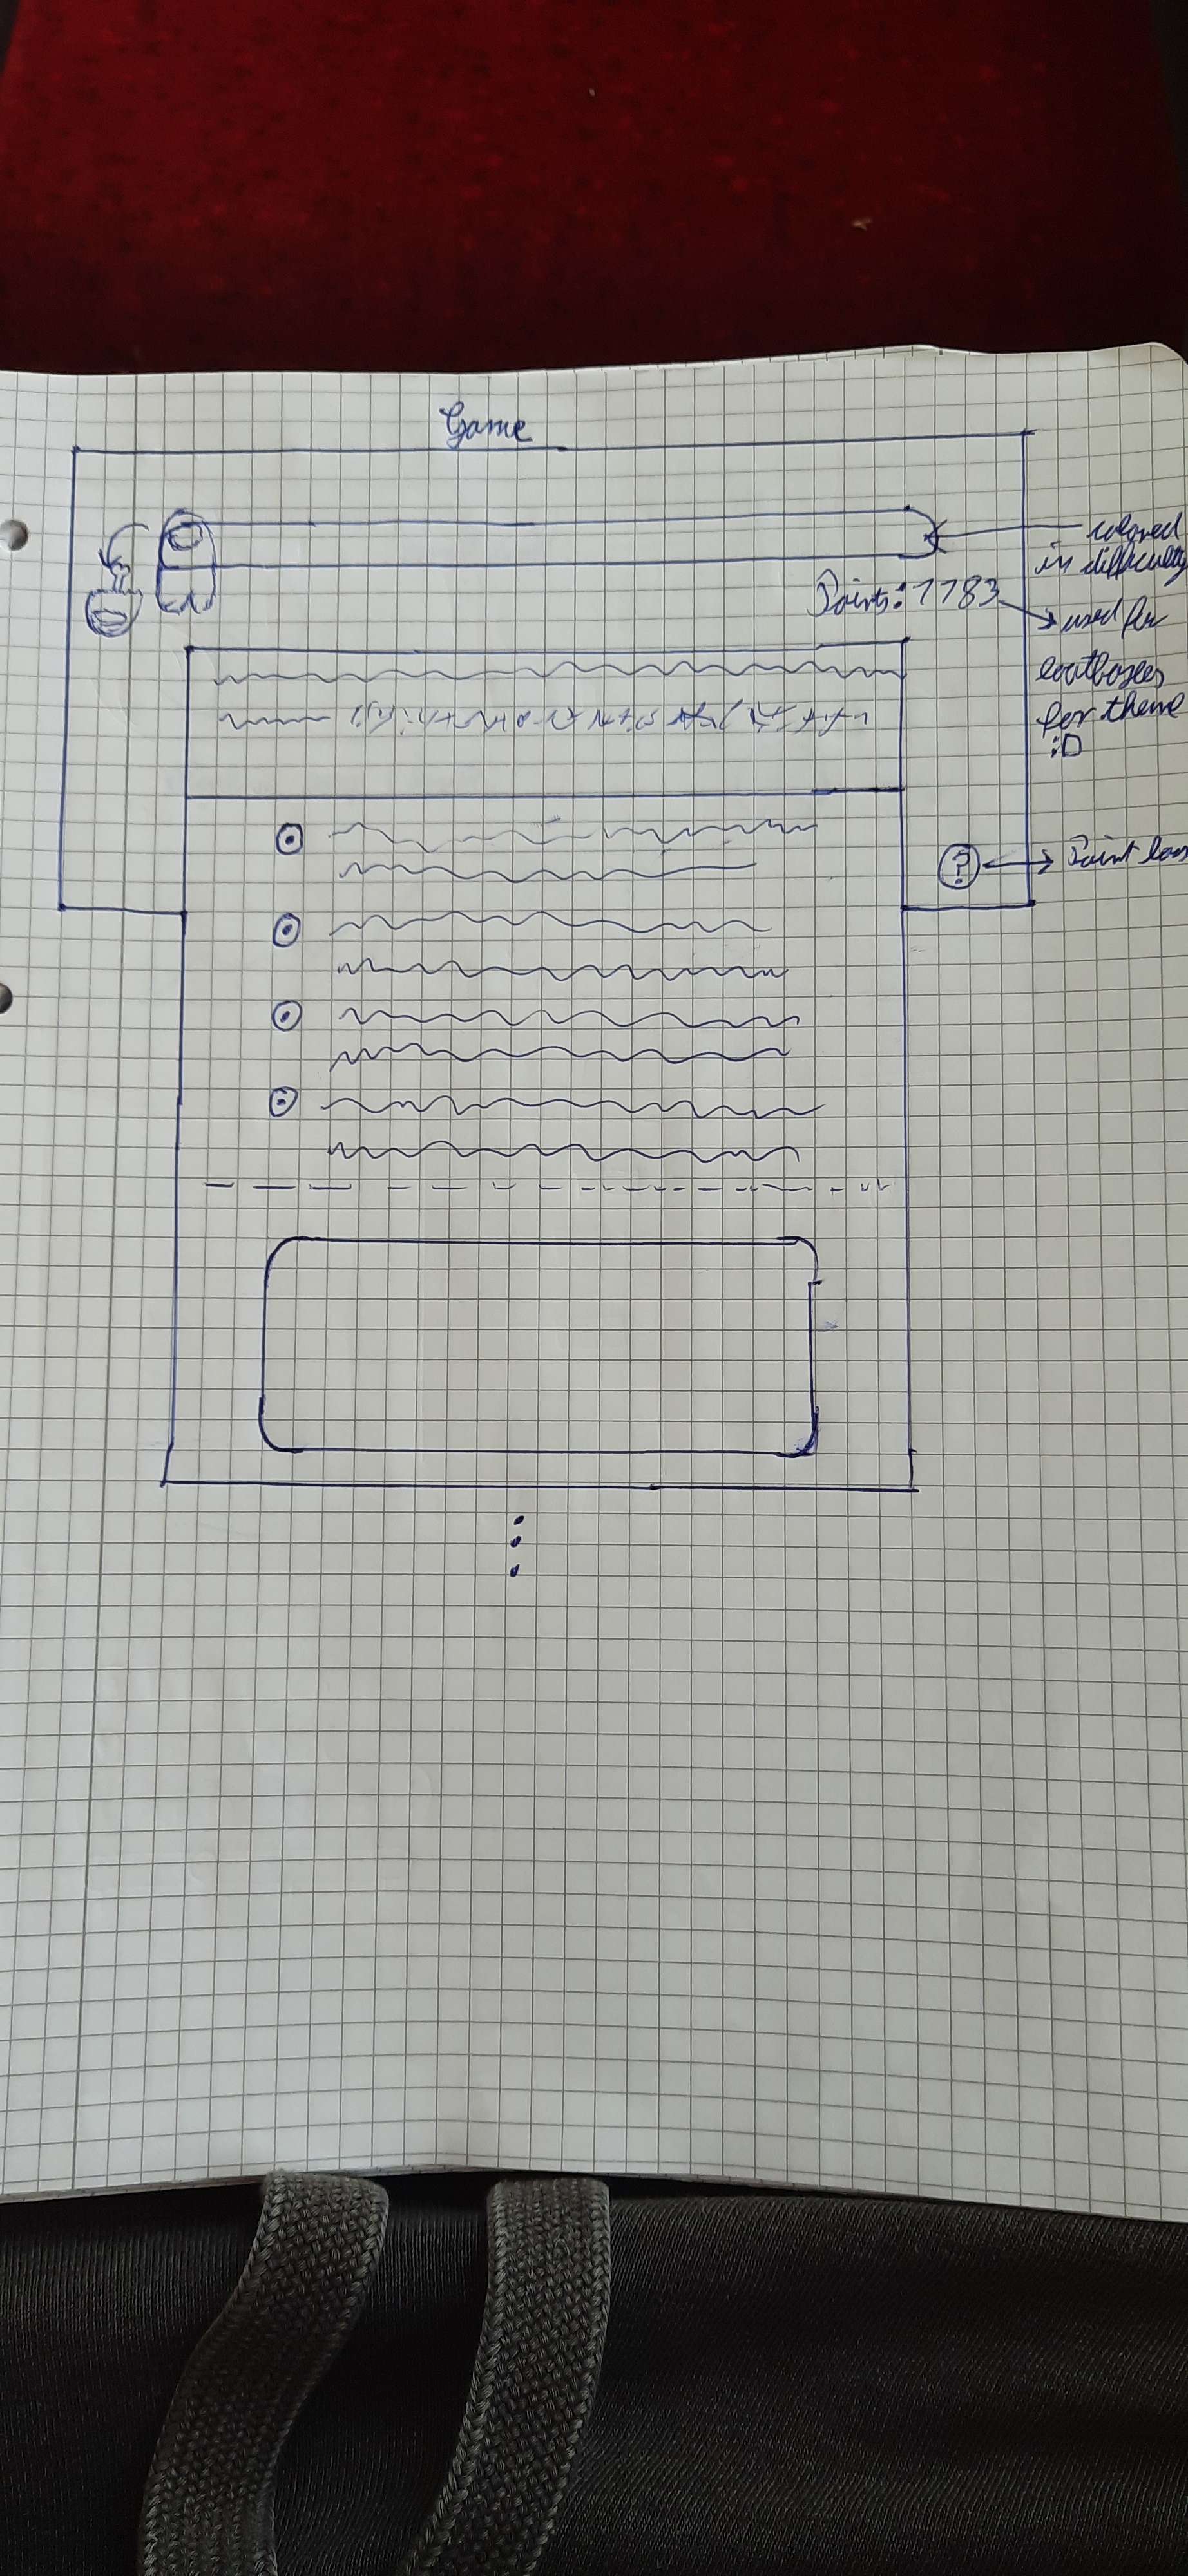 Game
colored
in difficulty
Points: 1183
used for
lootboxes
for theme
:D
?
Point loss